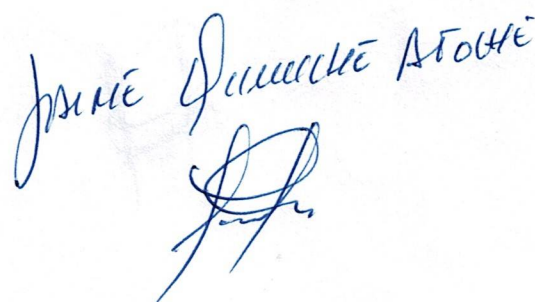 JAIME QUINUCHE ATOCHE